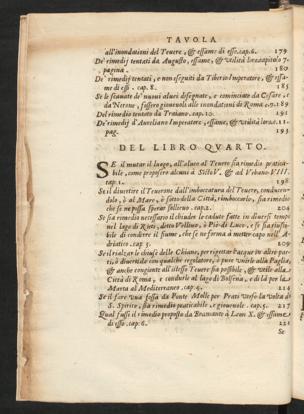 TAVOLA
all'inondationi del Teuere, & essame di esso.cap.6. 179
De' rimedij tentati da Augusto, essame, & vtilità loro.capitolo 7.
pagina. 180
De' rimedij tentati, e non eseguiti da Tiberio Imperatore, & essa-
me di essi. cap. 8. 185
Se le fiumate de' nuoui aluei disegnate, e cominciate da Cesare, e
da Nerone, fossero gioueuoli alle inondationi di Roma c.9. 189
Del rimedio tentato da Traiano. cap. 10. 191
De' rimedij d'Aureliano Imperatore, essame, & vtilità loro.c.11.
pag. 193
DEL LIBRO QVARTO.
SE il mutar il luogo, all'alueo al Teuere sia rimedio pratica-
bile, come proposero alcuni à Sisto V. & ad Vrbano VIII.
cap. 1. 198
Se il diuertire il Teuere dall'imboccatura del Teuere, conducen-
dolo, ò al Mare, ò sotto della Città, rimboccarlo, sia rimedio
che se ne possa sperar sollieuo. cap. 2. 204
Se sia rimedio necessario il chiuder le cadute fatte in diuersi tempi
nel lago di Rieti, detto Vellino, ò Piè di Luco, e se sia riusci-
bile di condurre il fiume, che se ne forma à metter capo nell'A-
driatico. cap. 3. 209
Se il rialzar le chiuse delle Chiane, per rigettar l'acque in altre par-
ti, ò diuertirle con qualche regolatore, ò pure vnirle alla Paglia,
& anche congiunte all'istesso Teuere sia possibile, & vtile alla
Città di Roma, e condurle al lago di Bolsena, e di là per la
Marta al Mediterraneo. cap. 4. 214
Se il fare vna fossa da Ponte Molle per Prati verso la volta di
S. Spirito, sia rimedio praticabile, e gioueuole. cap. 5. 217
Qual fusse il rimedio proposto da Bramante à Leon X. & essame
di esso. cap. 6. 221
Se